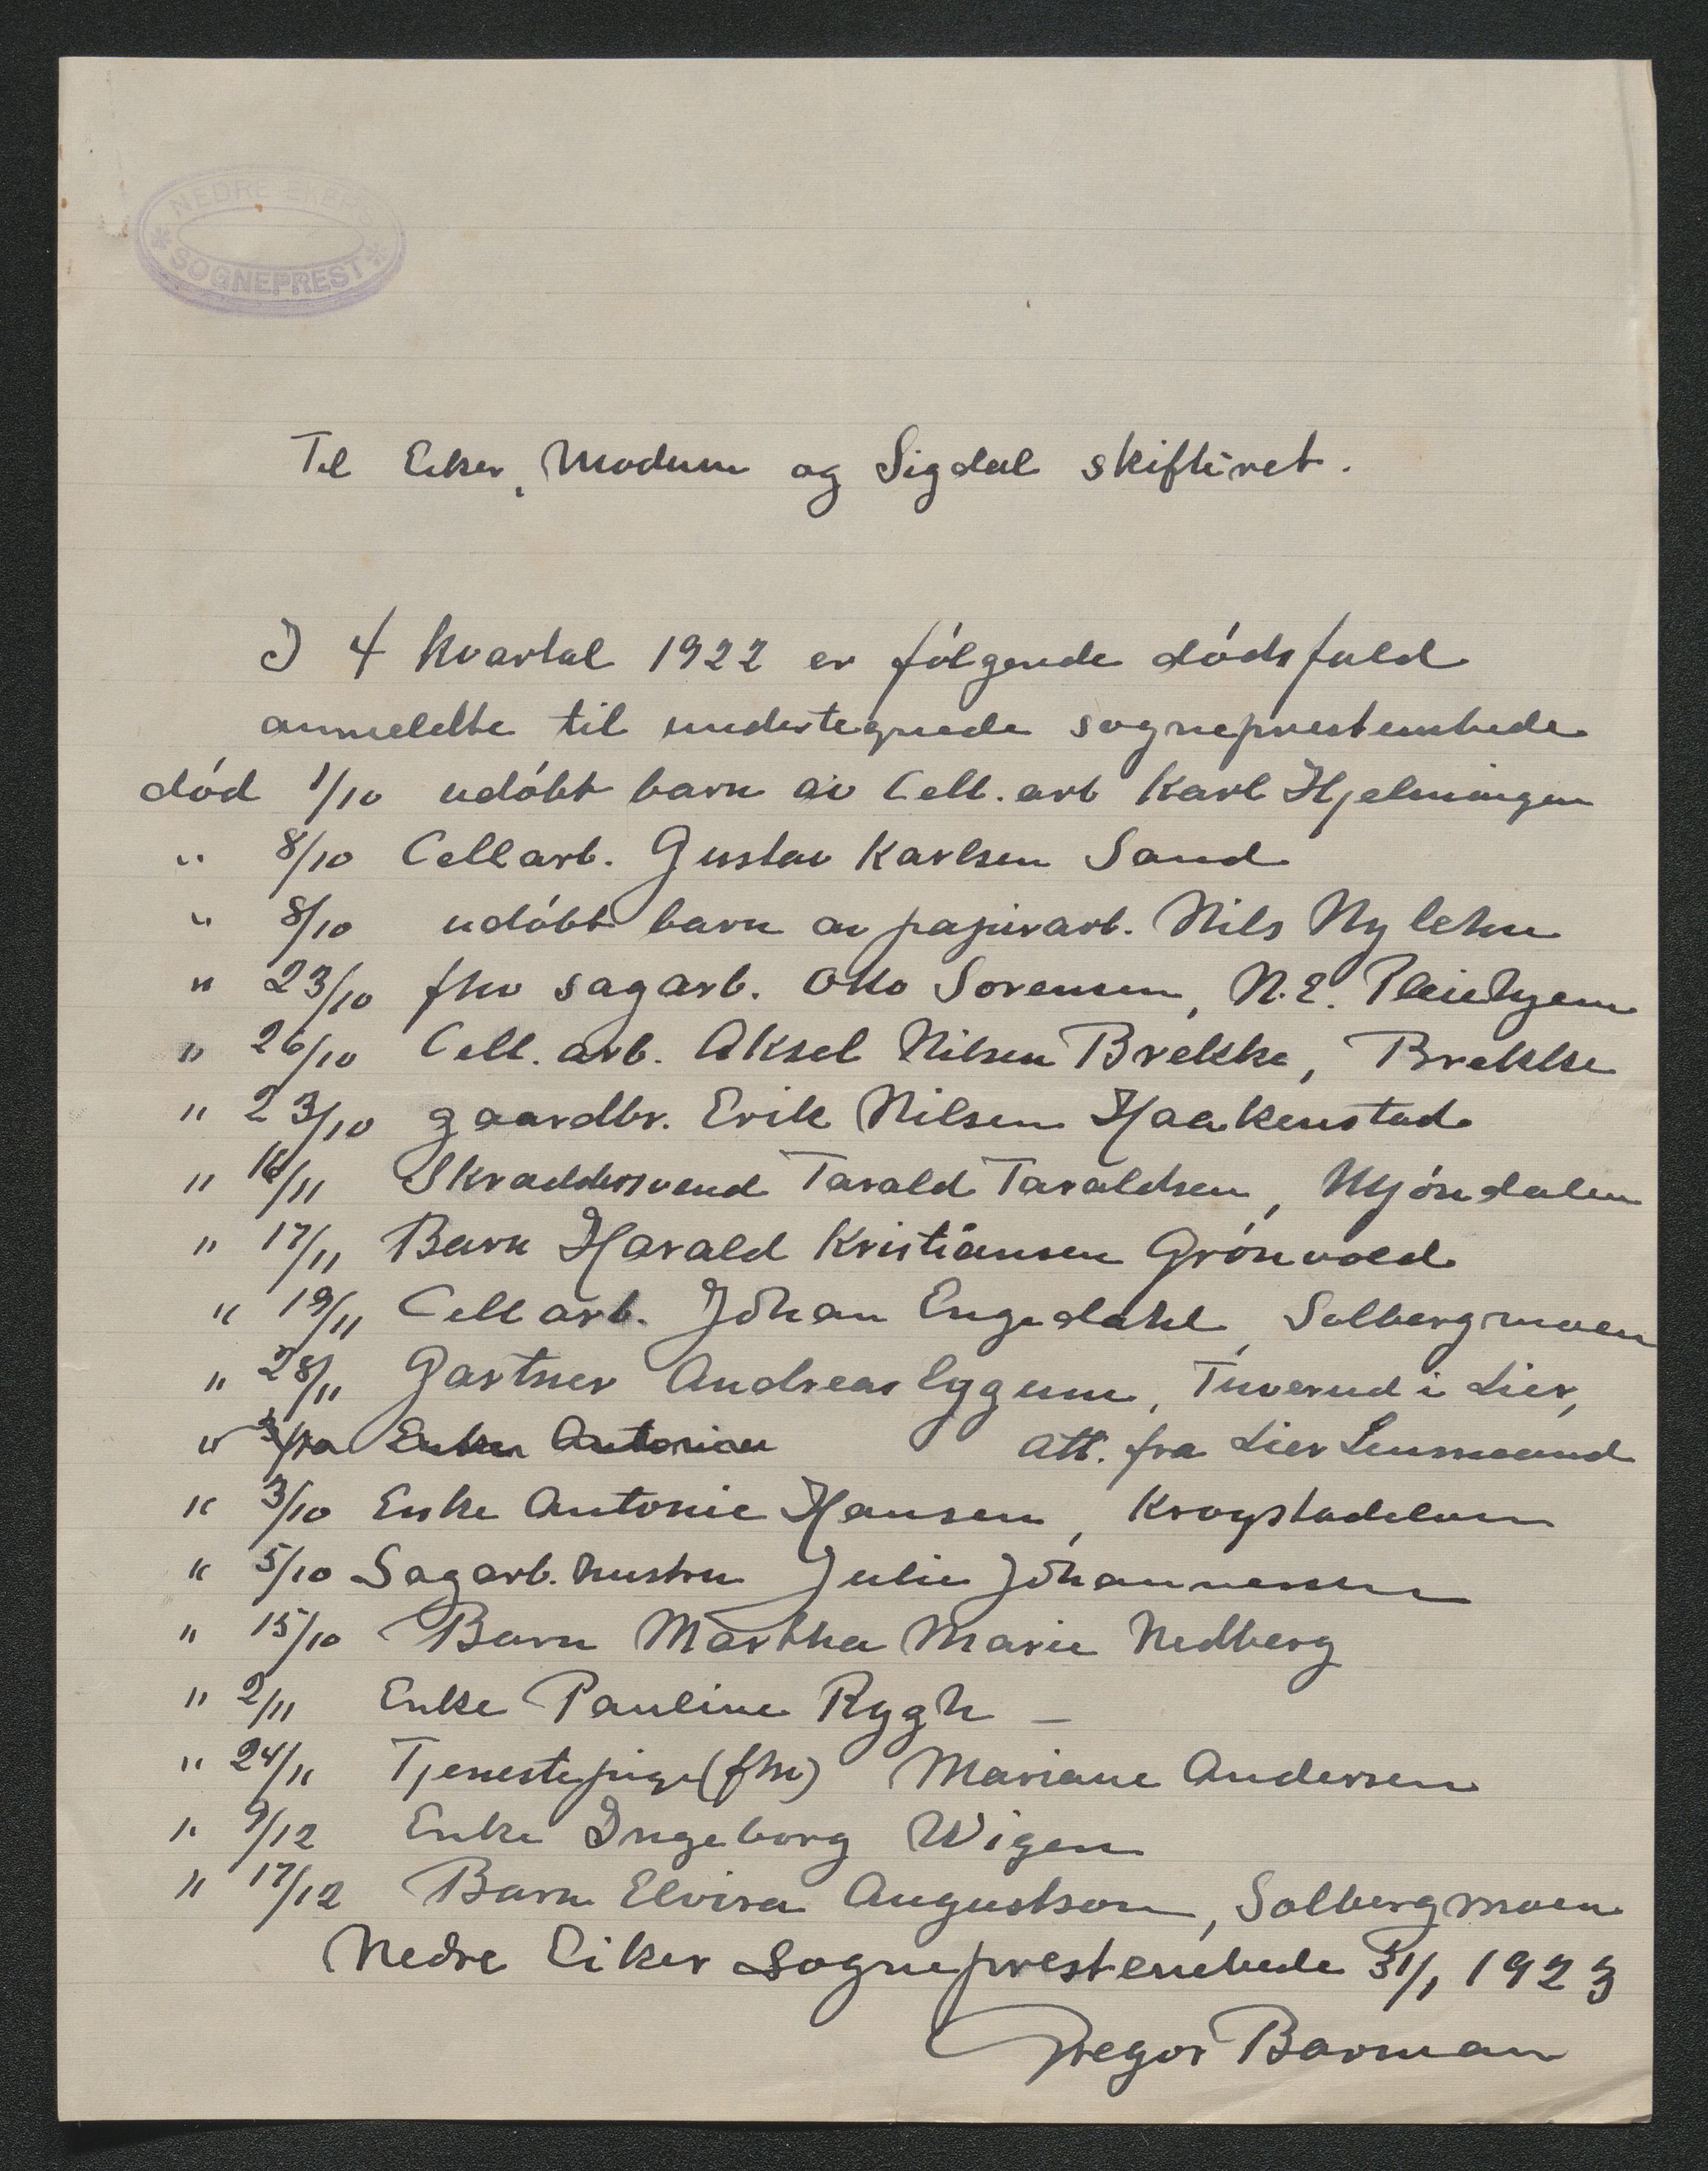 NEDRE EKERS
SOGNEPREST
Til Eiker, Modum og Sigdal skifteret.
I 4 kvartal 1922 er følgende dødsfald
anmeldte til undertegnede sogneprestembede
død 1/10 udøbt barn av Cell. arb Karl Hjelmingen
" 8/10 Cellarb. Gustav Karlsen Sand
" 8/10 udøbt barn av papirarb. Nils Nylehn
" 23/10 fhv sagarb. Otto Sorensen, N.E. Pleiehjem
" 26/10 Cell. arb. Aksel Nilsen Brekke, Brekke
" 23/10 gaardbr. Erik Nilsen Haakenstad
" 16/11 Skraddersvend Tarald Taraldsen, Mjøndalen
" 17/11 Barn Harald Kristiansen Grønvold
" 19/11 Cellarb. Johan Engedahl, Solbergmoen
" 28/11 Gartner Andreas Eggum, Tuverud i Lier,
" Enken Antonian att. fra Lier Lensmand
" 3/10 Enke Antonie Hansen, Krogstadelven
" 5/10 Sagarb. hustru Julie Johannessen
" 15/10 Barn Martha Marie Nedberg
" 2/11 Enke Pauline Rygh –
" 24/11 Tjenestepige (fhv) Mariane Andersen
" 9/12 Enke Ingeborg Wigen
" 17/12 Barn Elvira Augustson, Solbergmoen
Nedre Eiker Sogneprestembede 31/1 1923
Gregor Borman